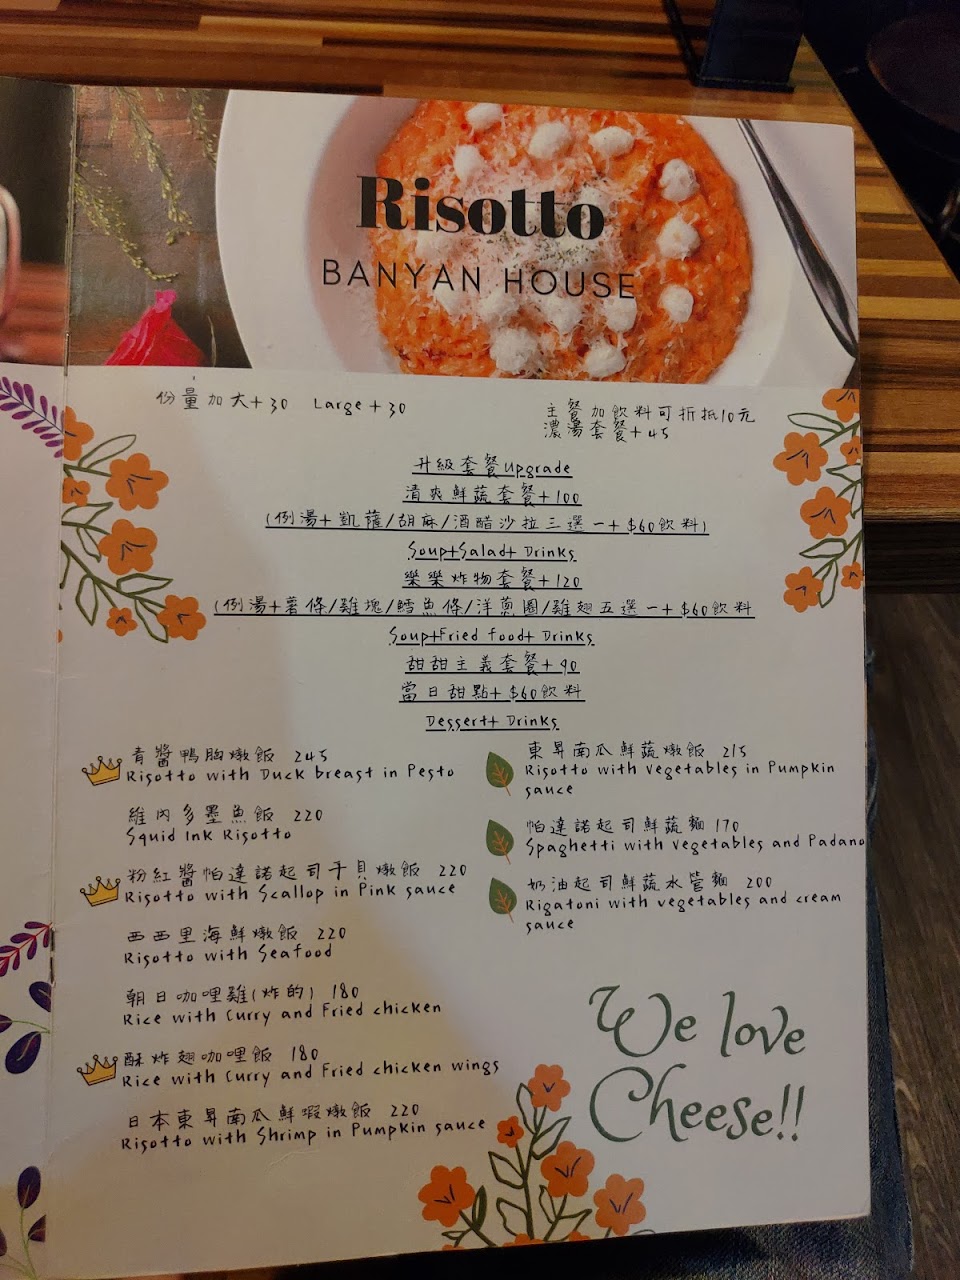 Risotto
BANYAN HOUSE
份量加大+30 Large+30
主餐加飲料可折抵10元
濃湯套餐+45
升級套餐Upgrade
清爽鮮蔬套餐+100
(例湯+凱薩/胡麻/酒醋沙拉三選一+$60飲料)
Soup+Salad+ Drinks
樂樂炸物套餐+120
(例湯+薯條/雞塊/鱈魚條/洋蔥圈/雞翅五選一+$60飲料
Soup+Fried food+ Drinks
甜甜主義套餐+90
當日甜點+$60飲料
Dessert+ Drinks
青醬鴨胸燉飯 245
Risotto with Duck breast in Pesto
維內多墨魚飯 220
Squid Ink Risotto
粉紅醬帕達諾起司干貝燉飯 220
Risotto with Scallop in Pink sauce
西西里海鮮燉飯 220
Risotto with Seafood
朝日咖哩雞(炸的) 180
Rice with Curry and Fried chicken
酥炸翅咖哩飯 180
Rice with Curry and Fried chicken wings
日本東昇南瓜鮮蝦燉飯 220
Risotto with Shrimp in Pumpkin sauce
東昇南瓜鮮蔬燉飯 215
Risotto with Vegetables in Pumpkin
sauce
帕達諾起司鮮蔬麵 170
Spaghetti with Vegetables and Padano
奶油起司鮮蔬水管麵 200
Rigatoni with vegetables and cream
sauce
We love
Cheese!!